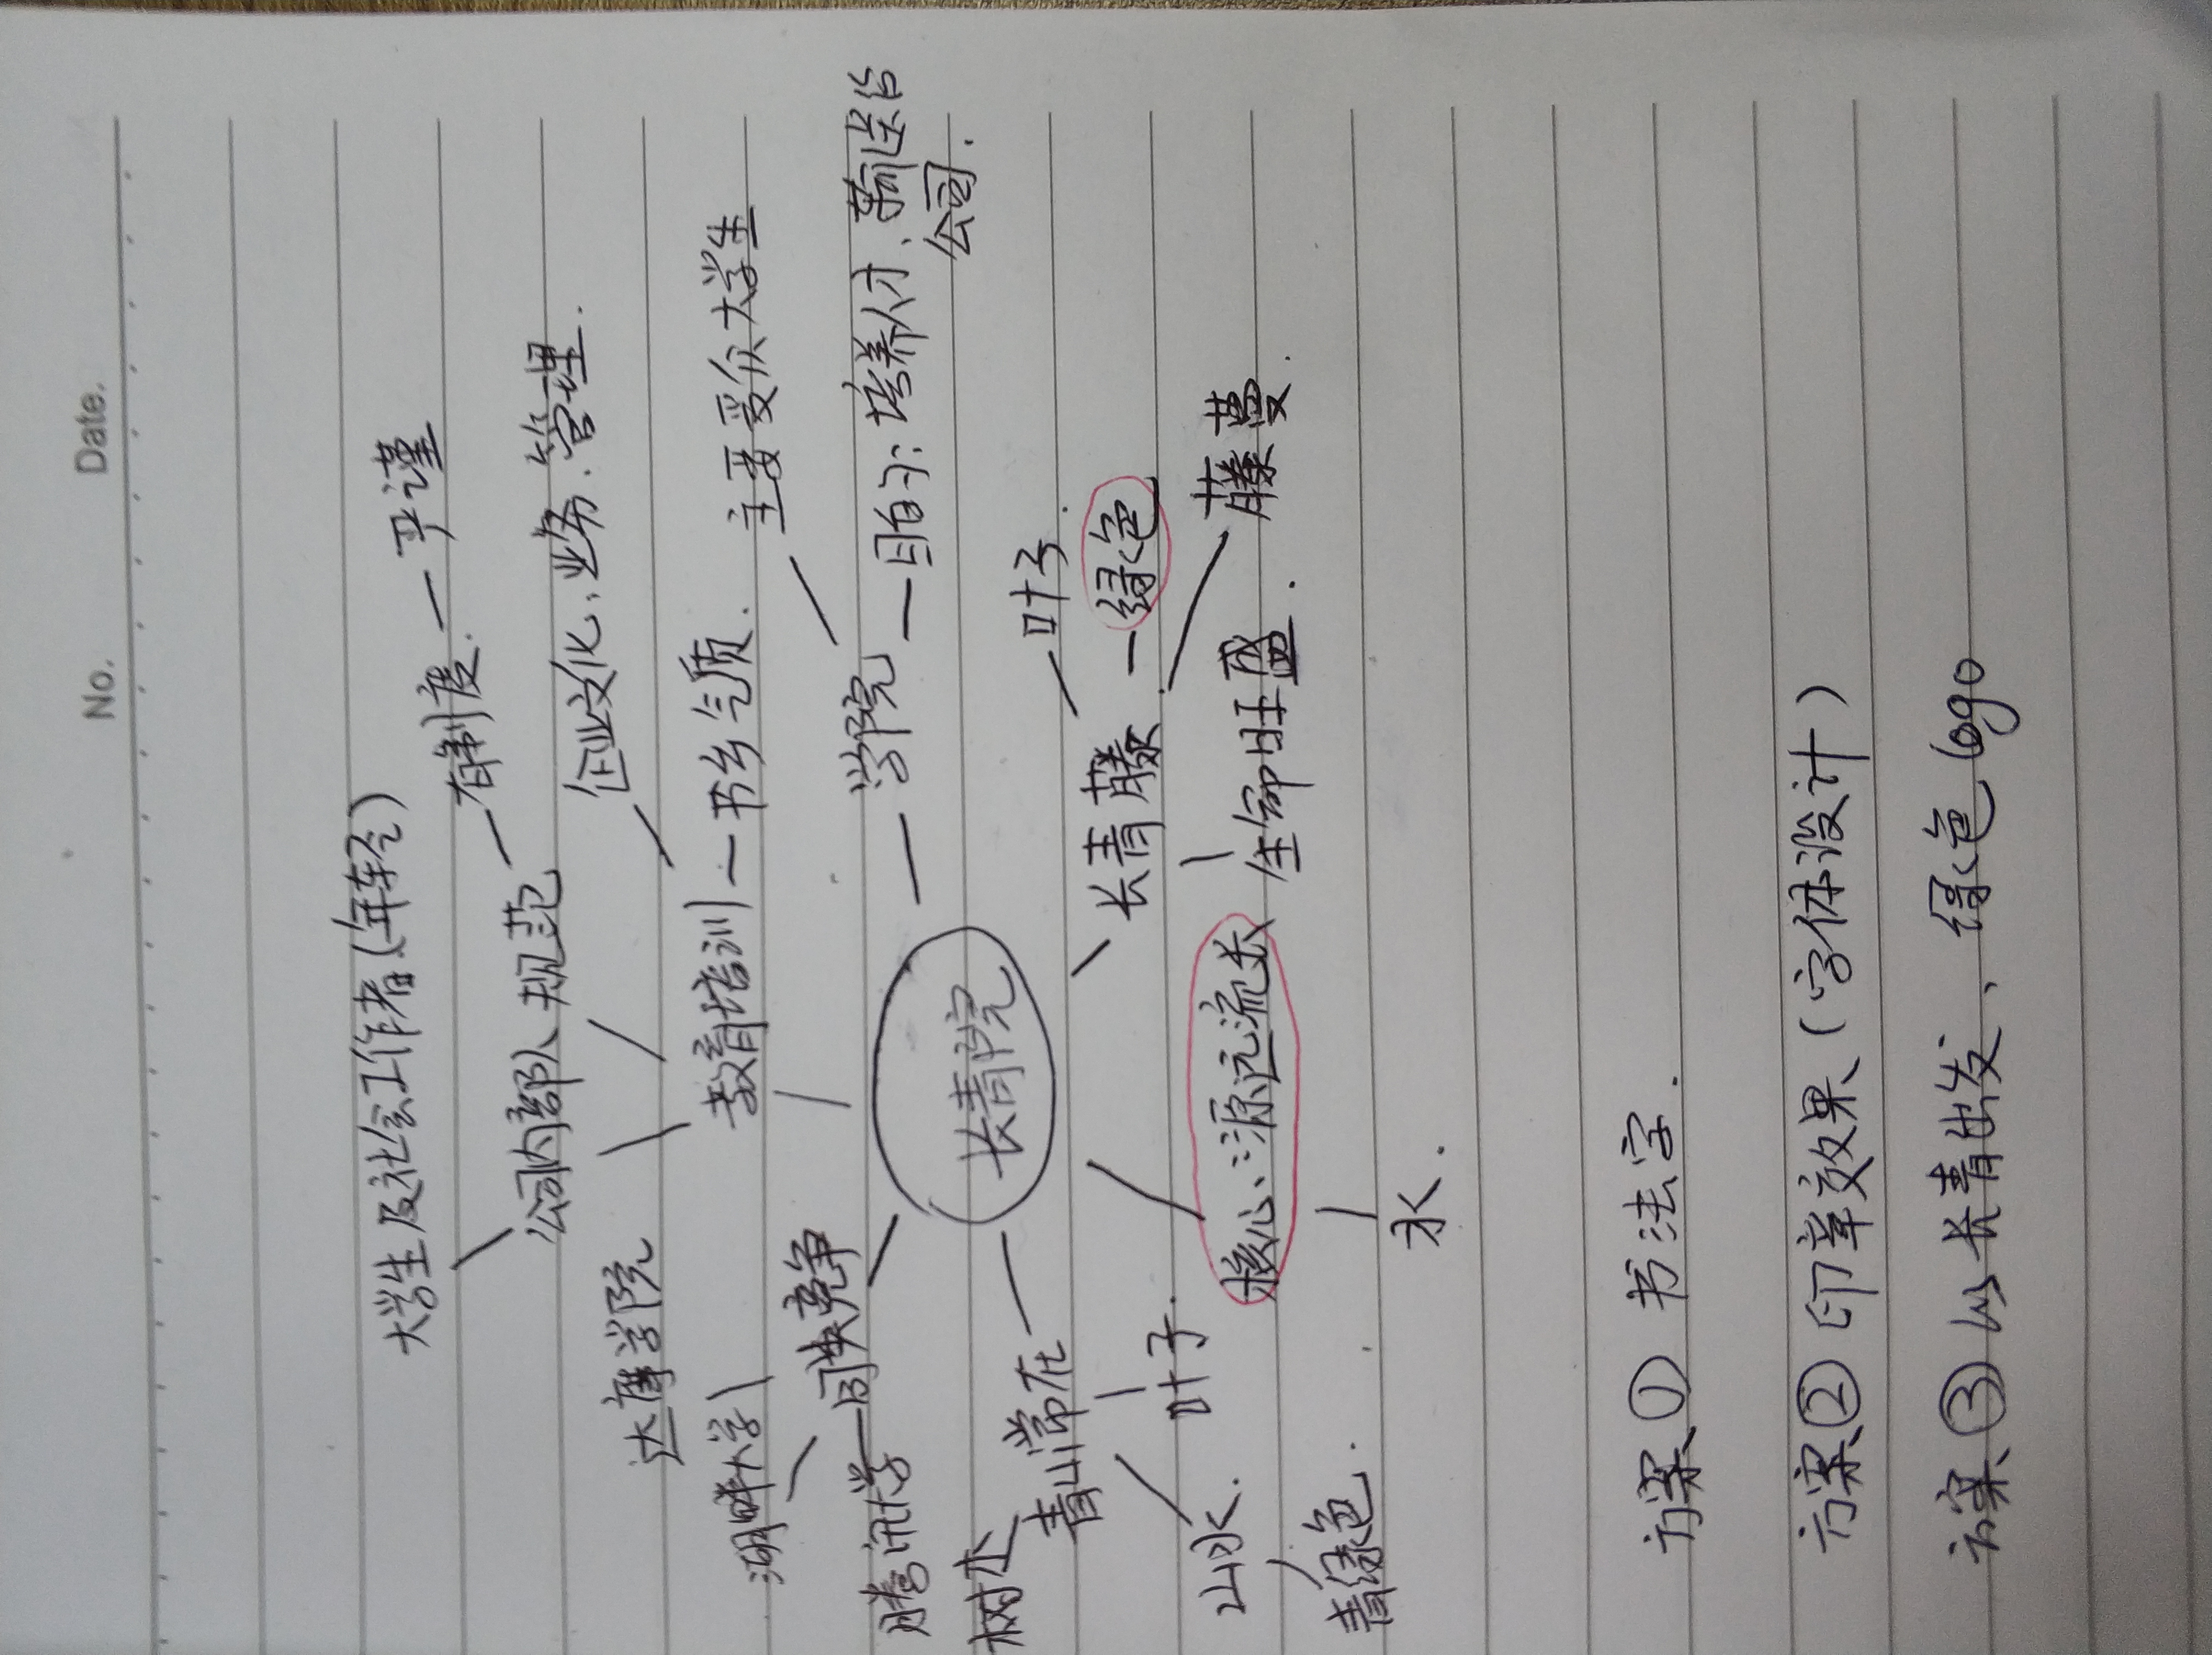 No.
Date.
大学生及社会工作者(年轻)
有制度 — 严谨
公司内部人 规范
企业文化、业务、管理.
达摩学院
教育培训 — 书乡气质.
主要受众大学生
湖畔大学
同类竞争
腾讯大学
学院 — 目的: 培养人才、输送给
公司.
长青院
树木
青山常在
叶子.
山水.
青绿色.
叶子.
长青藤 — 绿色
藤蔓.
核心: 源远流长
生命旺盛.
水.
方案① 书法字.
方案② 印章效果(字体设计)
方案③ 以长青出发、绿色logo